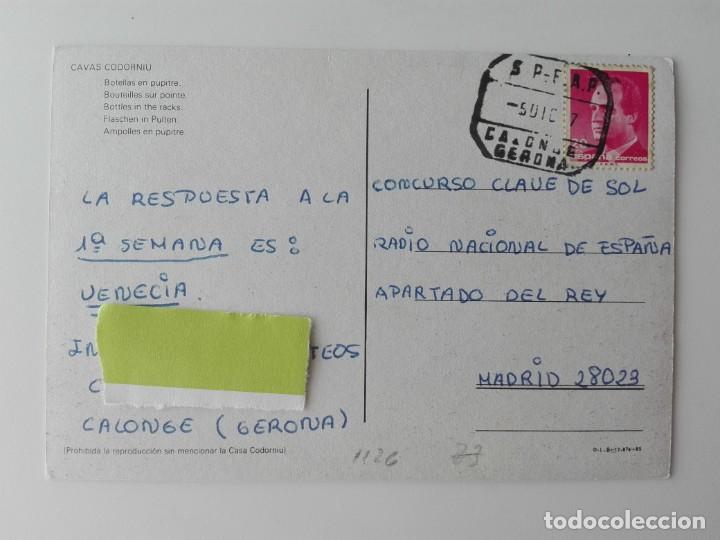 CAVAS CODORNIU
Botellas en pupitre.
Bouteilles sur pointe.
Bottles in the racks.
Flaschen in Pulten.
Ampolles en pupitre.
LA RESPUESTA A LA
1ª SEMANA ES:
VENECIA.
IN TEOS
C
CALONGE (GERONA)
(Prohibida la reproducción sin mencionar la Casa Codorniu)
S P.-F.A.P.
-5 DIC 7
CALONGE
GERONA
España correos
CONCURSO CLAVE DE SOL
RADIO NACIONAL DE ESPAÑA
APARTADO DEL REY
MADRID 28023
1126
todocoleccion